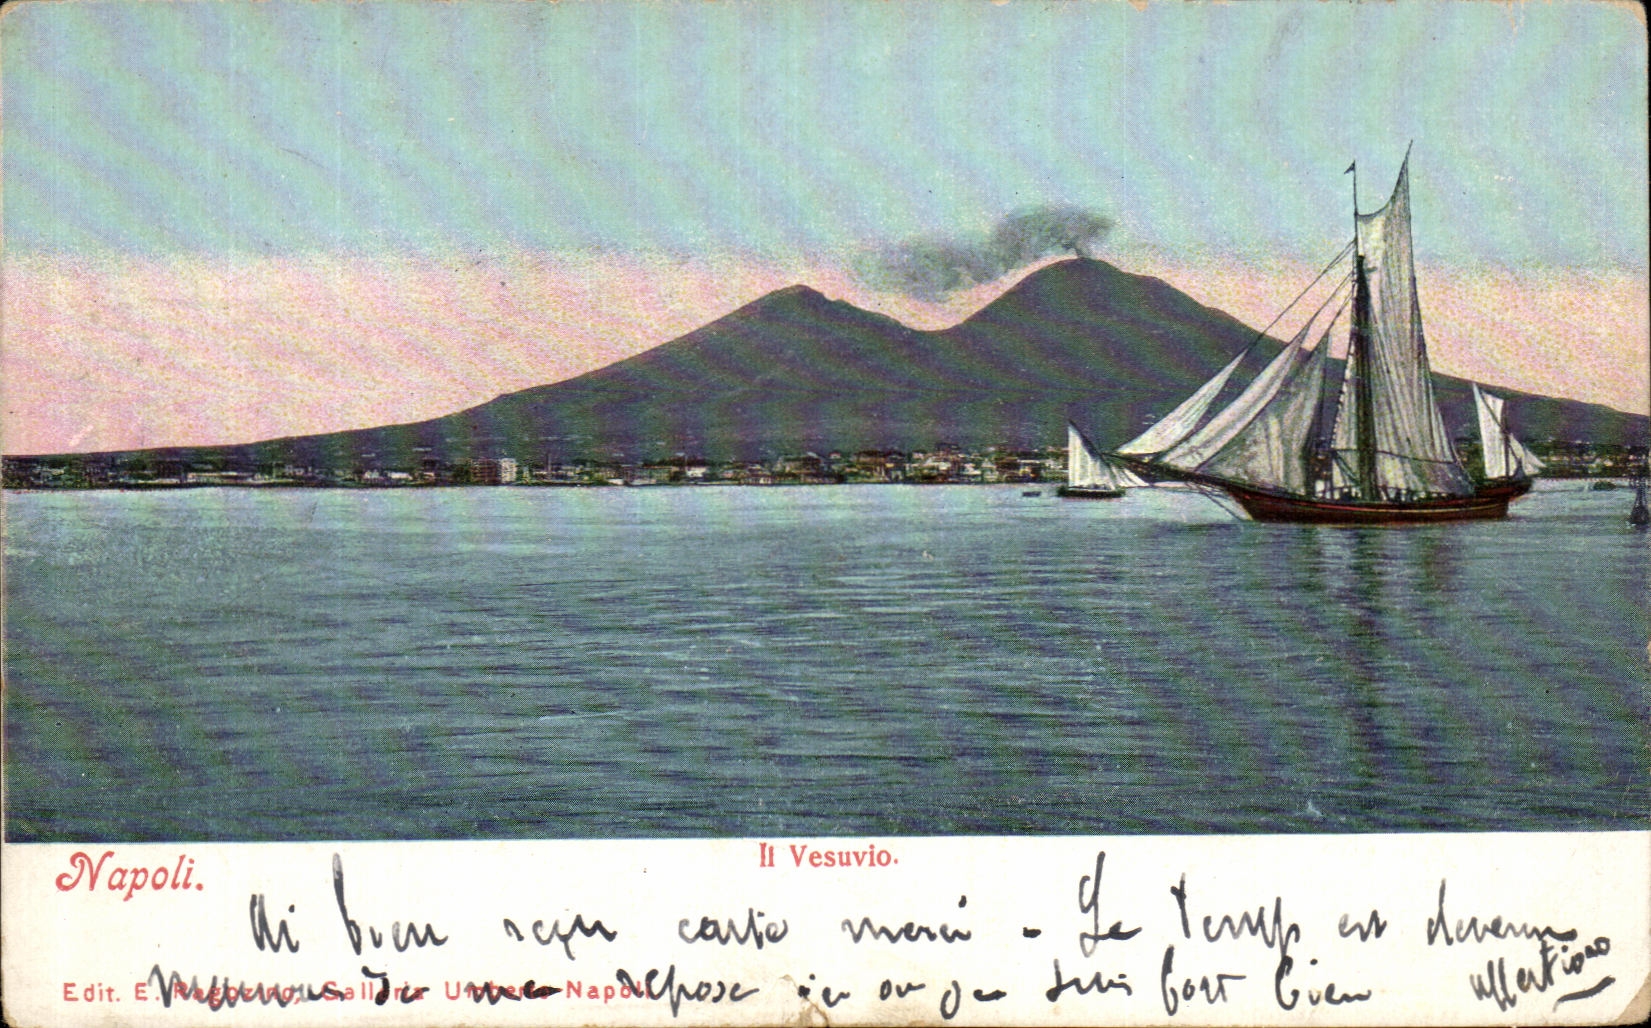 Napoli.
Il Vesuvio.
Ai bien reçu carte merci - Le Temps est devenu
je me repose ici ou je suis fort bien
Edit. E. Ragozino, Galleria Umberto Napoli